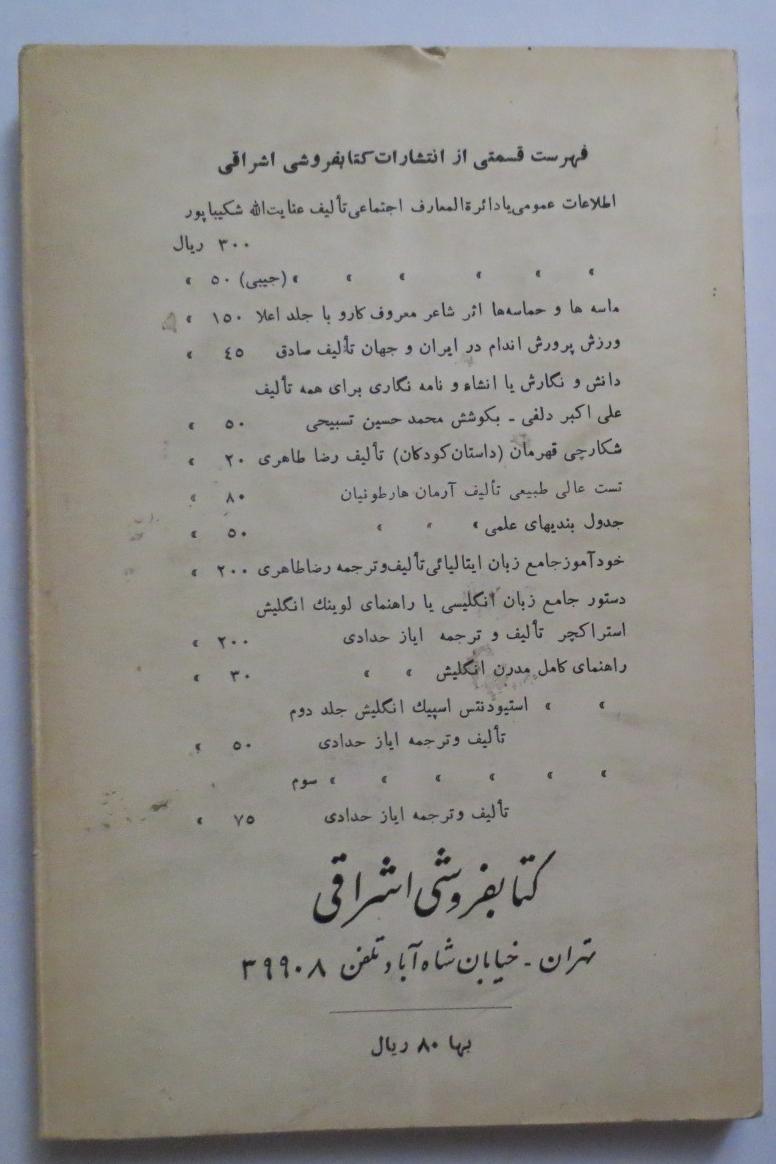 فهرست قسمتی از انتشارات کتابفروشی اشراقی
اطلاعات عمومی یا دائرةالمعارف اجتماعی تألیف عنایت‌الله شکیباپور
۳۰۰ ریال
» » » » » » (جیبی) ۵۰ »
ماسه ها و حماسه‌ها اثر شاعر معروف کارو با جلد اعلا ۱۵۰ »
ورزش پرورش اندام در ایران و جهان تألیف صادق ۴۵ »
دانش و نگارش یا انشاء و نامه نگاری برای همه تألیف
علی اکبر دلفی - بکوشش محمد حسین تسبیحی ۵۰ »
شکارچی قهرمان (داستان کودکان) تألیف رضا طاهری ۲۰ »
تست عالی طبیعی تألیف آرمان هارطونیان ۸۰ »
جدول بندیهای علمی » » » ۵۰ »
خودآموز جامع زبان ایتالیائی تألیف و ترجمه رضا طاهری ۲۰۰ »
دستور جامع زبان انگلیسی یا راهنمای لوینك انگلیش
استراکچر تألیف و ترجمه ایاز حدادی ۲۰۰ »
راهنمای کامل مدرن انگلیش » » ۳۰ »
» » استیودنتس اسپیك انگلیش جلد دوم
تألیف و ترجمه ایاز حدادی ۵۰ »
» » » » » » سوم
تألیف و ترجمه ایاز حدادی ۷۵ »
کتابفروشی اشراقی
تهران - خیابان شاه آباد تلفن ۳۹۹۰۸
بها ۸۰ ریال